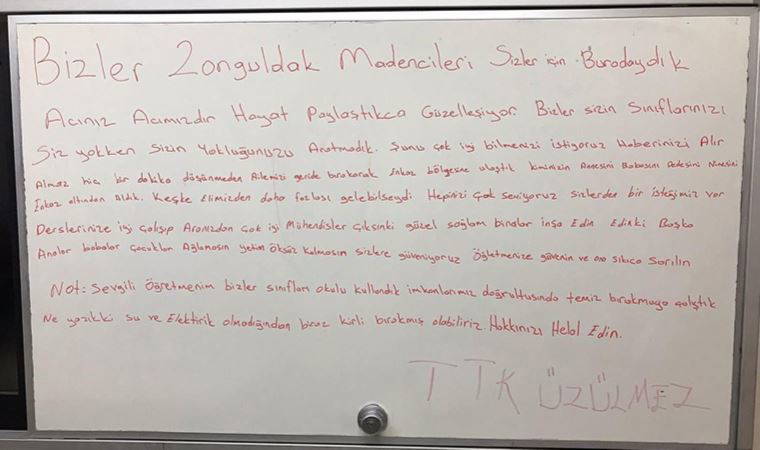 Bizler Zonguldak Madencileri Sizler için Buradaydık
Acınız Acımızdır Hayat Paylaştıkca Güzelleşiyor. Bizler sizin Sınıflarınızı
Siz yokken Sizin Yokluğunuzu Aratmadık. Şunu çok iyi bilmenizi istiyoruz Haberinizi Alır
Almaz hiç bir dakika düşünmeden Ailemizi geride bırakarak Enkaz bölgesine ulaştık kiminizin Annesini Babasını Dedesini Ninesini
Enkaz altından aldık. Keşke Elimizden daha fazlası gelebilseydi Hepinizi çok seviyoruz sizlerden bir isteğimiz var
Derslerinize iyi çalışıp Aranızdan çok iyi Mühendisler çıksınki güzel sağlam binalar inşa Edin Edinki Başka
Analar babalar çocuklar Ağlamasın yetim öksüz kalmasın sizlere güveniyoruz Öğletmenize güvenin ve ona sıkıca sarılın
Not: Sevgili Öğretmenim bizler sınıfları okulu kullandık imkanlarımız doğrultusunda temiz bırakmaya çalıştık
Ne yazıkki su ve Elektirik olmadığından biraz kirli bırakmış olabiliriz Hakkınızı Helal Edin.
TTK ÜZÜLMEZ